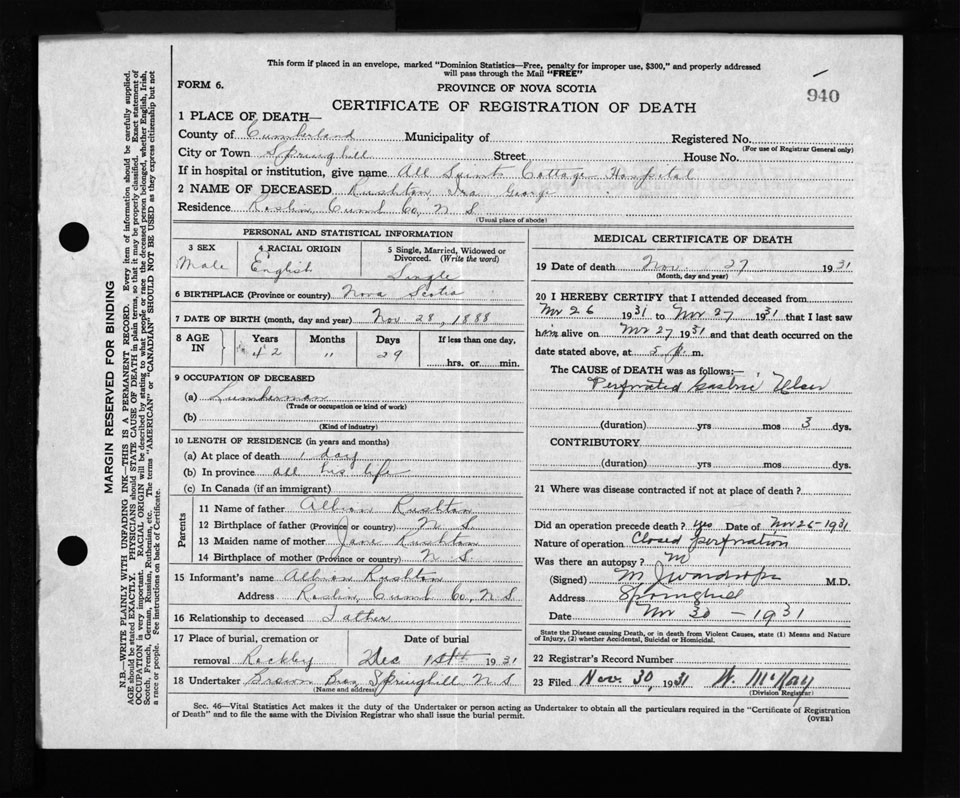 This form if placed in an envelope, marked "Dominion Statistics—Free, penalty for improper use, $300," and properly addressed
will pass through the Mail "FREE"
FORM 6.
PROVINCE OF NOVA SCOTIA
940
CERTIFICATE OF REGISTRATION OF DEATH
1 PLACE OF DEATH—
County of Cumberland Municipality of Registered No.
(For use of Registrar General only)
City or Town Springhill Street House No.
If in hospital or institution, give name All Saints Cottage Hospital
2 NAME OF DECEASED Rushton Ira George
Residence Roslin, Cumb Co, N S
(Usual place of abode)
PERSONAL AND STATISTICAL INFORMATION
3 SEX 4 RACIAL ORIGIN 5 Single, Married, Widowed or
Divorced. (Write the word)
Male English Single
6 BIRTHPLACE (Province or country) Nova Scotia
7 DATE OF BIRTH (month, day and year) Nov 28, 1888
8 AGE IN Years Months Days If less than one day,
42 11 29 hrs. or min.
9 OCCUPATION OF DECEASED
(a) Lumberman
(Trade or occupation or kind of work)
(b)
(Kind of industry)
10 LENGTH OF RESIDENCE (in years and months)
(a) At place of death 1 day
(b) In province all his life
(c) In Canada (if an immigrant)
Parents
11 Name of father Albion Rushton
12 Birthplace of father (Province or country) N S
13 Maiden name of mother Jane Rushton
14 Birthplace of mother (Province or country) N S
15 Informant's name Albion Rushton
Address Roslin, Cumb Co, N S
16 Relationship to deceased Father
17 Place of burial, cremation or Date of burial
removal Rockley Dec 1st 1931
18 Undertaker Brown Bros, Springhill N S
(Name and address)
MEDICAL CERTIFICATE OF DEATH
19 Date of death Nov 27 1931
(Month, day and year)
20 I HEREBY CERTIFY that I attended deceased from
Nov 26 1931 to Nov 27 1931 that I last saw
him alive on Nov 27 1931 and that death occurred on the
date stated above, at 5 p. m.
The CAUSE of DEATH was as follows:—
Perforated Gastric Ulcer
(duration) yrs mos 3 dys.
CONTRIBUTORY
(duration) yrs mos dys.
21 Where was disease contracted if not at place of death?
Did an operation precede death? yes Date of Nov 26-1931
Nature of operation Closed perforation
Was there an autopsy? No
(Signed) M. J. Wardrope M.D.
Address Springhill
Date Nov 30 - 1931
State the Disease causing Death, or in death from Violent Causes, state (1) Means and Nature
of Injury, (2) whether Accidental, Suicidal or Homicidal.
22 Registrar's Record Number
23 Filed Nov. 30, 1931 W. McKay
(Division Registrar)
Sec. 46—Vital Statistics Act makes it the duty of the Undertaker or person acting as Undertaker to obtain all the particulars required in the "Certificate of Registration
of Death" and to file the same with the Division Registrar who shall issue the burial permit.
(OVER)
MARGIN RESERVED FOR BINDING
N.B.—WRITE PLAINLY WITH UNFADING INK—THIS IS A PERMANENT RECORD. Every item of information should be carefully supplied.
AGE should be stated EXACTLY. PHYSICIANS should STATE CAUSE OF DEATH in plain terms, so that it may be properly classified. Exact statement of
OCCUPATION is very important. RACIAL ORIGIN will be described by stating to what people or race the deceased person belonged, whether English, Irish,
Scotch, French, German, Russian, Ruthenian, etc. The terms "AMERICAN" or "CANADIAN" SHOULD NOT BE USED as they express citizenship but not
a race or people. See instructions on back of Certificate.